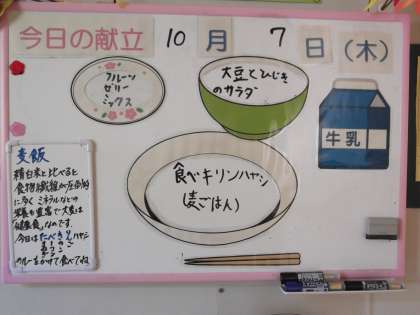 今日の献立 10月7日(木)
フルーツ
ゼリー
ミックス
大豆とひじき
のサラダ
牛乳
食べキリンハヤシ
(麦ごはん)
麦飯
精白米と比べると
食物繊維が圧倒的
に多く ミネラルなどの
栄養も豊富で 大変
健康食なのです。
今日は たべきりんハヤシ
のルーをかけて食べてね